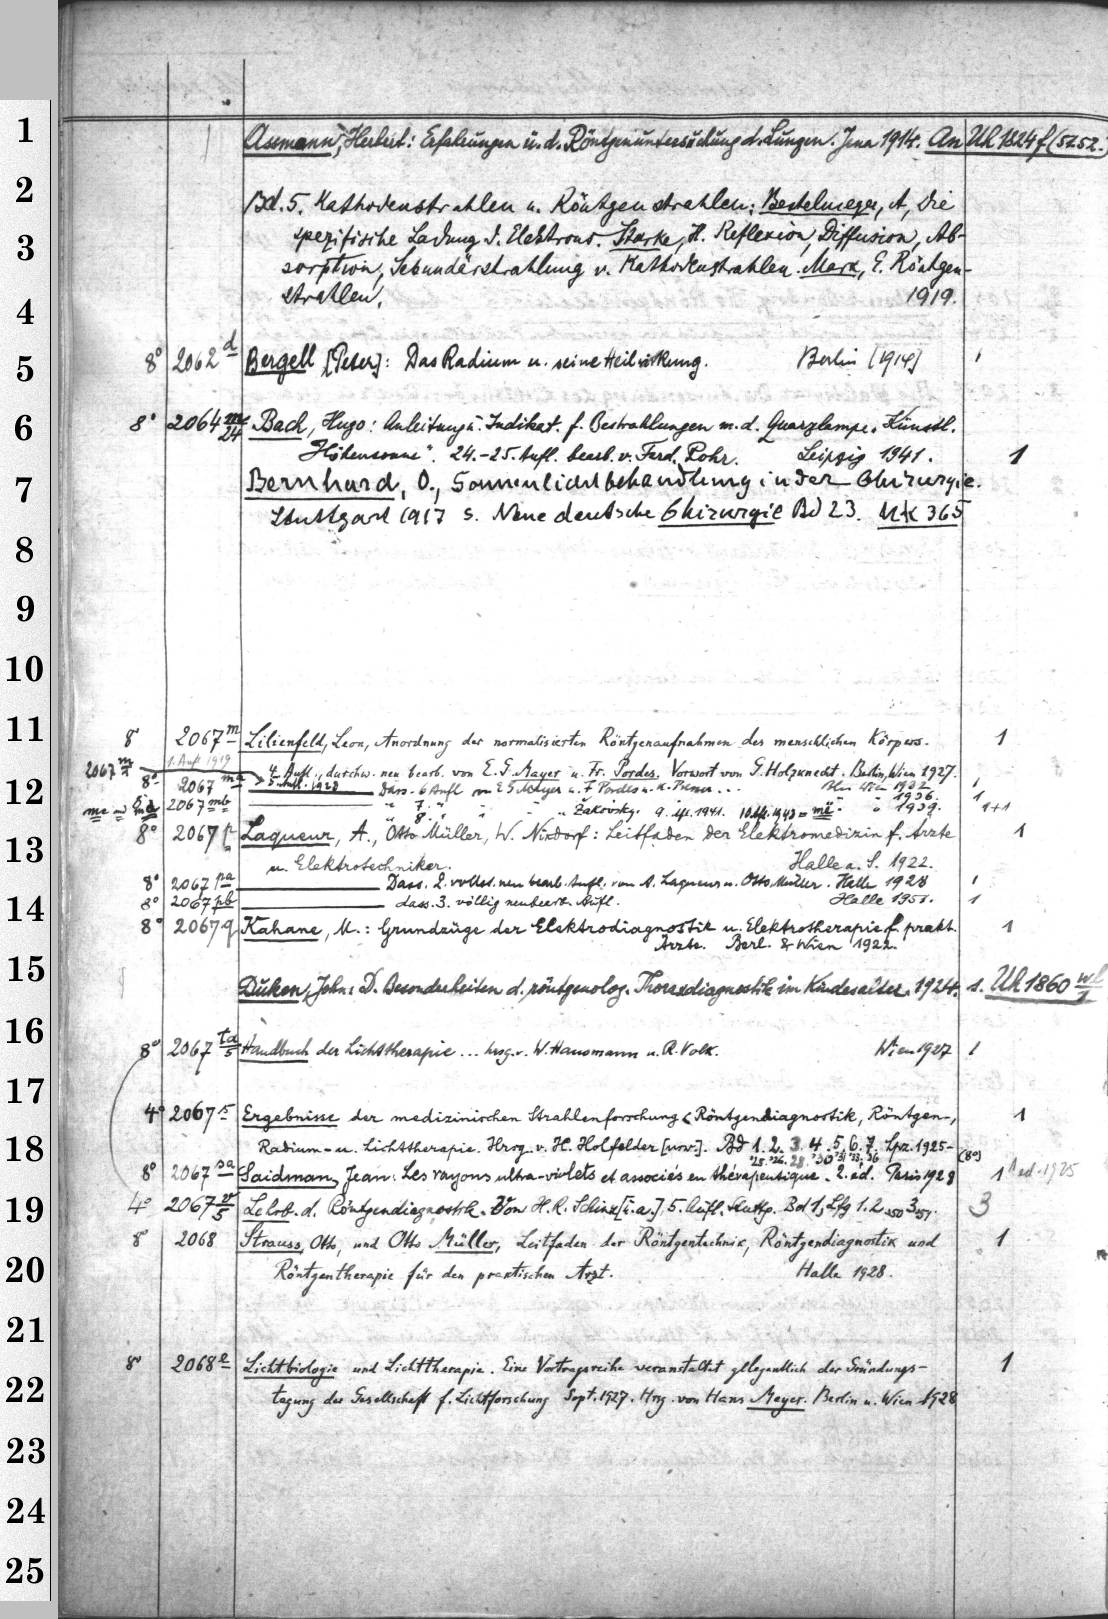 1
Assmann, Herbert: Erfahrungen ü. d. Röntgenuntersuchung d. Lungen. Jena 1914. An Uk 1824 f (5252.)
2
Bd. 5. Kathodenstrahlen u. Röntgenstrahlen: Bestelmeyer, A, Die
3
spezifische Ladung d. Elektrons. Starke, H. Reflexion, Diffusion, Ab-
sorption, Sekundärstrahlung v. Kathodenstrahlen. Marx, E. Röntgen-
4
strahlen. 1919.
5
8° 2062 d Bergell [Peter]: Das Radium u. seine Heilwirkung. Berlin [1914] 1
6
8° 2064 m/24 Bach, Hugo: Anleitung u. Indikat. f. Bestrahlungen m. d. Quarzlampe. Künstl.
Höhensonne". 24.-25. Aufl. bearb. v. Ferd. Rohr. Leipzig 1941. 1
7
Bernhard, O., Sonnenlichtbehandlung in der Chirurgie.
Stuttgart 1917 s. Neue deutsche Chirurgie Bd 23. Uk 365
8
9
10
11
8° 2067 m Lilienfeld, Leon, Anordnung der normalisierten Röntgenaufnahmen des menschlichen Körpers. 1
1. Aufl 1919
2067 m/1 4. Aufl., durchw. neu bearb. von E. G. Mayer u. Fr. Pordes. Vorwort von G. Holzknecht. Berlin, Wien 1927. 1
12
8° 2067 ma Dass. 6 Aufl von E G Mayer u. F Pordes u. Wien 1932 1
2067 mb " 7. " " 1936. 1
" 8. " " Žakovský. 9. 1941. 1943 = " 1939. 1+1
13
8° 2067 p Laqueur, A., Otto Müller, W. Nixdorf: Leitfaden der Elektromedizin f. Ärzte 1
u. Elektrotechniker. Halle a. S. 1922.
8° 2067 pa Dass. 2. vollst. neu bearb. Aufl. von A. Laqueur u. Otto Müller. Halle 1928 1
14
8° 2067 pb dass. 3. völlig neubearb. Aufl. Halle 1951. 1
8° 2067 q Kahane, M.: Grundzüge der Elektrodiagnostik u. Elektrotherapie f. prakt. 1
Ärzte. Berl. & Wien 1922.
15
Duken, John: D. Besonderheiten d. röntgenolog. Thoraxdiagnostik im Kindesalter. 1924. s. Uk 1860 wl/1
16
8° 2067 ta/5 Handbuch der Lichttherapie ... hrsg. v. W. Hausmann u. R. Volk. Wien 1927 1
17
4° 2067 s Ergebnisse der medizinischen Strahlenforschung < Röntgendiagnostik, Röntgen-, 1
18
Radium- u. Lichttherapie. Hrsg. v. H. Holfelder [usw.]. Bd 1. 2. 3. 4. 5. 6. 7. Lpz. 1925-
'25. '26. 28. '30 '31 '33 '36 (8°)
8° 2067 sa Saidman, Jean. Les rayons ultra-violets et associés en thérapeutique. 2. éd. Paris 1928 1 1 ed. 1925
19
4° 2067 v/5 Lehrb. d. Röntgendiagnostik. Von H. R. Schinz [u.a.] 5. Aufl. Stuttg. Bd 1, Lfg 1. 2 1950 3 1951. 3
8° 2068 Strauss, Otto, und Otto Müller, Leitfaden der Röntgentechnik, Röntgendiagnostik und 1
20
Röntgentherapie für den praktischen Arzt. Halle 1928.
21
8° 2068 e Lichtbiologie und Lichttherapie. Eine Vortragsreihe veranstaltet gelegentlich der Gründungs- 1
22
tagung der Gesellschaft f. Lichtforschung Sept. 1927. Hrg. von Hans Meyer. Berlin u. Wien 1928
23
24
25